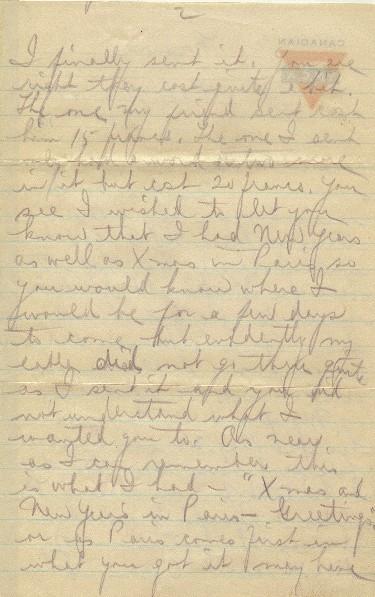 2
CANADIAN
I finally sent it. You are
right they cost quite a bit.
The one my friend sent cost
him 15 francs. The one I sent
only had a word or two more
in it but cost 20 francs. You
see I wished to let you
know that I had New Years
as well as Xmas in Paris so
you would know where I
would be for a few days
to come, but evidently my
cable did not go thru quite
as I sent it and you did
not understand what I
wanted you to. As near
as I can remember this
is what I had - "Xmas and
New Years in Paris - Greetings"
or as Paris comes first in
what you got it may have